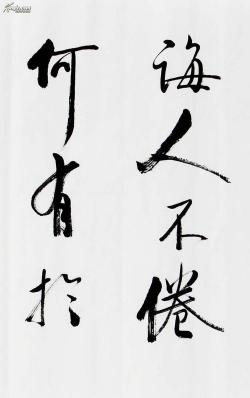 诲人不倦
何有於